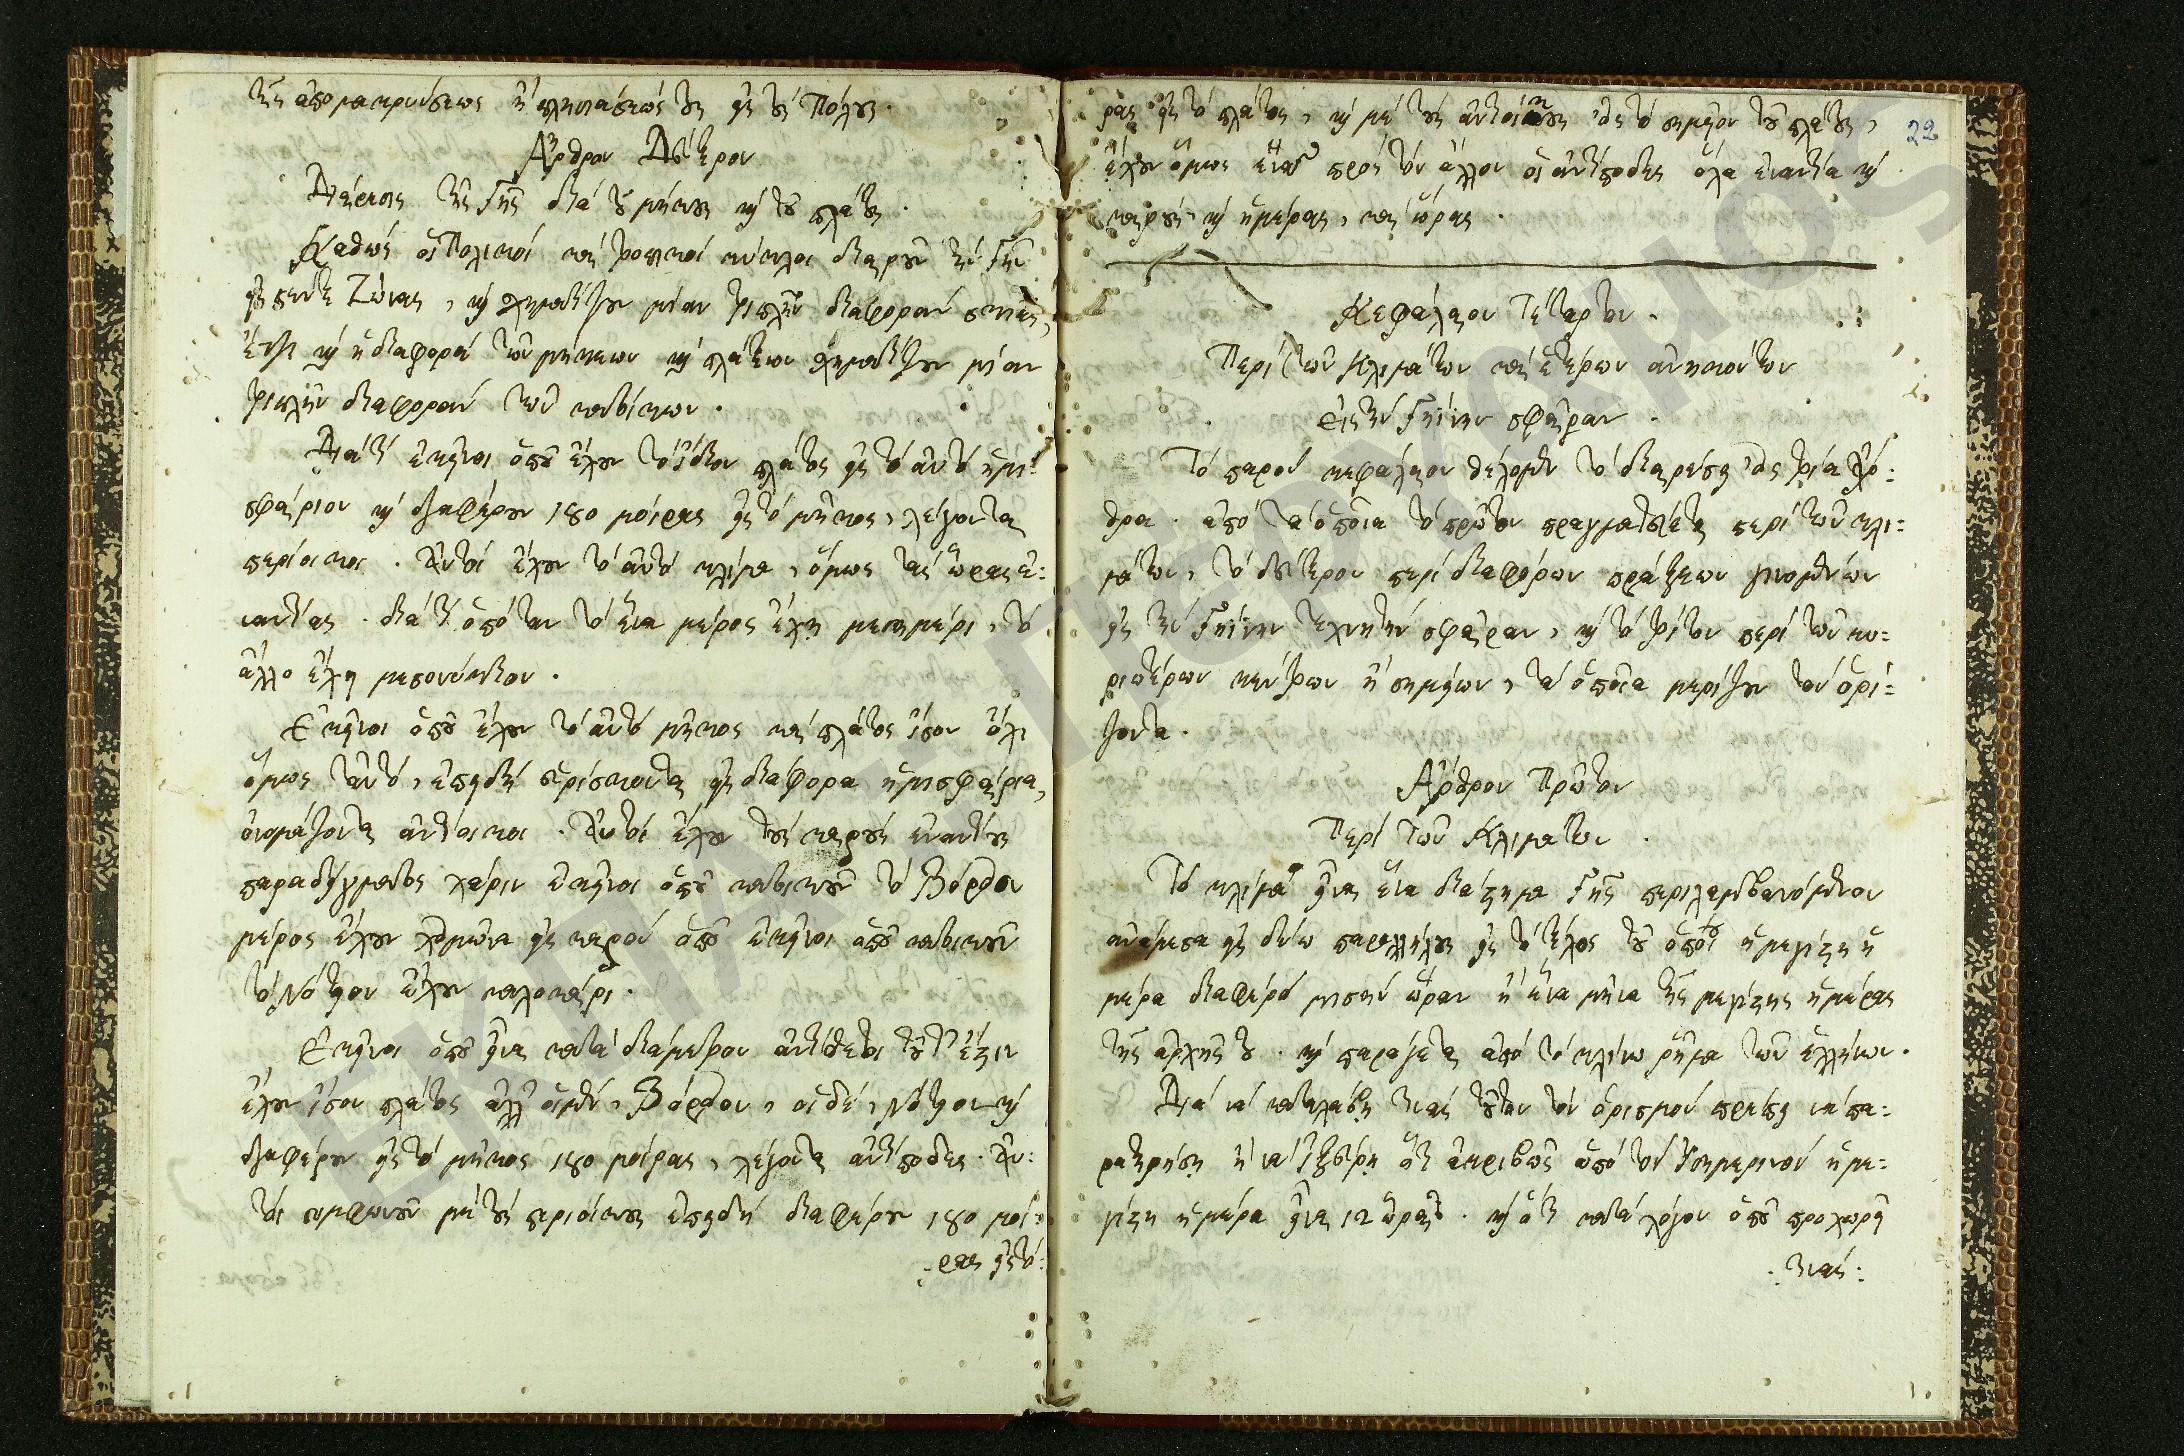 τῆς ἀπομακρύσεως ἢ πλησιάσεώς τους εἰς τοὺς Πόλους.
Ἄρθρον Δεύτερον
Διαίρεσις τῆς Γῆς διὰ τοῦ μήκους καὶ τοῦ πλάτους.
Καθὼς οἱ Πολικοὶ καὶ τροπικοὶ κύκλοι διαιροῦν τὴν Γῆν
εἰς πέντε Ζώνας, καὶ σχηματίζουν μίαν τριπλῆν διαφορὰν σκιᾶς,
ἔτζι καὶ ἡ διαφορὰ τῶν μήκεων καὶ πλάτεων σχηματίζουν μίαν
τριπλῆν διαφορὰν τῶν κατοίκων.
Διατὶ ἐκεῖνοι ὁποῦ ἔχουν τὸ ἴδιον πλάτος εἰς τὸ αὐτὸ ἡμι:
σφαίριον καὶ διαφέρουν 180 μοίρας εἰς τὸ μῆκος, λέγονται
περίοικοι. Αὐτοὶ ἔχουν τὸ αὐτὸ κλίμα, ὅμως ταὶς ὥραις ἐ:
ναντίαις. διατὶ ὁπόταν τὸ ἕνα μέρος ἔχῃ μεσημέρι, τὸ
ἄλλο ἔχῃ μεσονύκτιον.
Ἐκεῖνοι ὁποῦ ἔχουν τὸ αὐτὸ μῆκος καὶ πλάτος ἴσον ὄχι
ὅμως ταὐτό, ἐπειδὴ εὑρίσκονται εἰς διάφορα ἡμισφαίρια,
ὀνομάζονται ἀντίοικοι. Αὐτοὶ ἔχουν τοὺς καιροὺς ἐναντίους
παραδείγματος χάριν ἐκεῖνοι ὁποῦ κατοικοῦν τὸ Βόρειον
μέρος ἔχουν χειμῶνα εἰς καιρὸν ὁποῦ ἐκεῖνοι ὁποῦ κατοικοῦν
τὸ Νότιον ἔχουν καλοκαίρι.
Ἐκεῖνοι ὁποῦ εἶναι κατὰ διάμετρον ἀντίθετοι τοῦτ' ἔστιν
ἔχουν ἴσον πλάτος ἀλλ' οἱ μὲν, Βόρειον, οἱ δὲ, Νότιον καὶ
διαφέρουν εἰς τὸ μῆκος 180 μοίρας, λέγονται ἀντίποδες. Αὐ:
τοὶ συμφωνοῦν μὲ τοὺς περιοίκους ἐπειδὴ διαφέρουν 180 μοί:
:ρας εἰς τὸ:
22
ρας εἰς τὸ πλάτος, καὶ μὲ τοὺς ἀντοίκους εἰς τὸ σημεῖον τοῦ πλάτους,
ἔχουν ὅμως ἕνας πρὸς τὸν ἄλλον οἱ ἀντίποδες ὅλα ἐναντία καὶ
καιρούς, καὶ ἡμέρας, καὶ ὥρας.
Κεφάλαιον Τέταρτον.
Περὶ τῶν Κλιμάτων καὶ ἑτέρων ἀνηκόντων
εἰς τὴν Γηΐνην σφαῖραν.
Τὸ παρὸν κεφάλαιον θέλομεν τὸ διαιρέσῃ εἰς τρία Ἄρ:
θρα. ἀπὸ τὰ ὁποῖα τὸ πρῶτον πραγματεύεται περὶ τῶν κλι:
μάτων, τὸ δεύτερον περὶ διαφόρων πράξεων γινομένων
εἰς τὴν Γηΐνην τεχνητὴν σφαῖραν, καὶ τὸ τρίτον περὶ τῶν κυ:
ριωτέρων κέντρων ἢ σημείων, τὰ ὁποῖα μερίζουν τὸν ὁρί:
ζοντα.
Ἄρθρον Πρῶτον
Περὶ τῶν Κλιμάτων.
Τὸ κλίμα εἶναι ἕνα διάστημα Γῆς περιλαμβανόμενον
ἀνάμεσα εἰς δύω παραλλήλους εἰς τὸ τέλος τοῦ ὁποίου ἡ μεγίστη ἡ
μέρα διαφέρει μισὴν ὥραν ἢ ἕνα μῆνα τῆς μεγίστης ἡμέρας
τῆς ἀρχῆς του. καὶ παράγεται ἀπὸ τὸ κλίνω ῥῆμα τῶν ἑλλήνων.
Διὰ νὰ καταλάβῃ τινὰς τοῦτον τὸν ὁρισμὸν πρέπει νὰ πα:
ρατηρήσῃ ἢ νὰ ἠξεύρῃ ὅτι ἀκριβῶς ὑπὸ τὸν Ἰσημερινὸν ἡ με:
γίστη ἡμέρα εἶναι 12 ὥραις. καὶ ὅτι κατὰ λόγον ὁποῦ προχωρεῖ
:τινὰς: